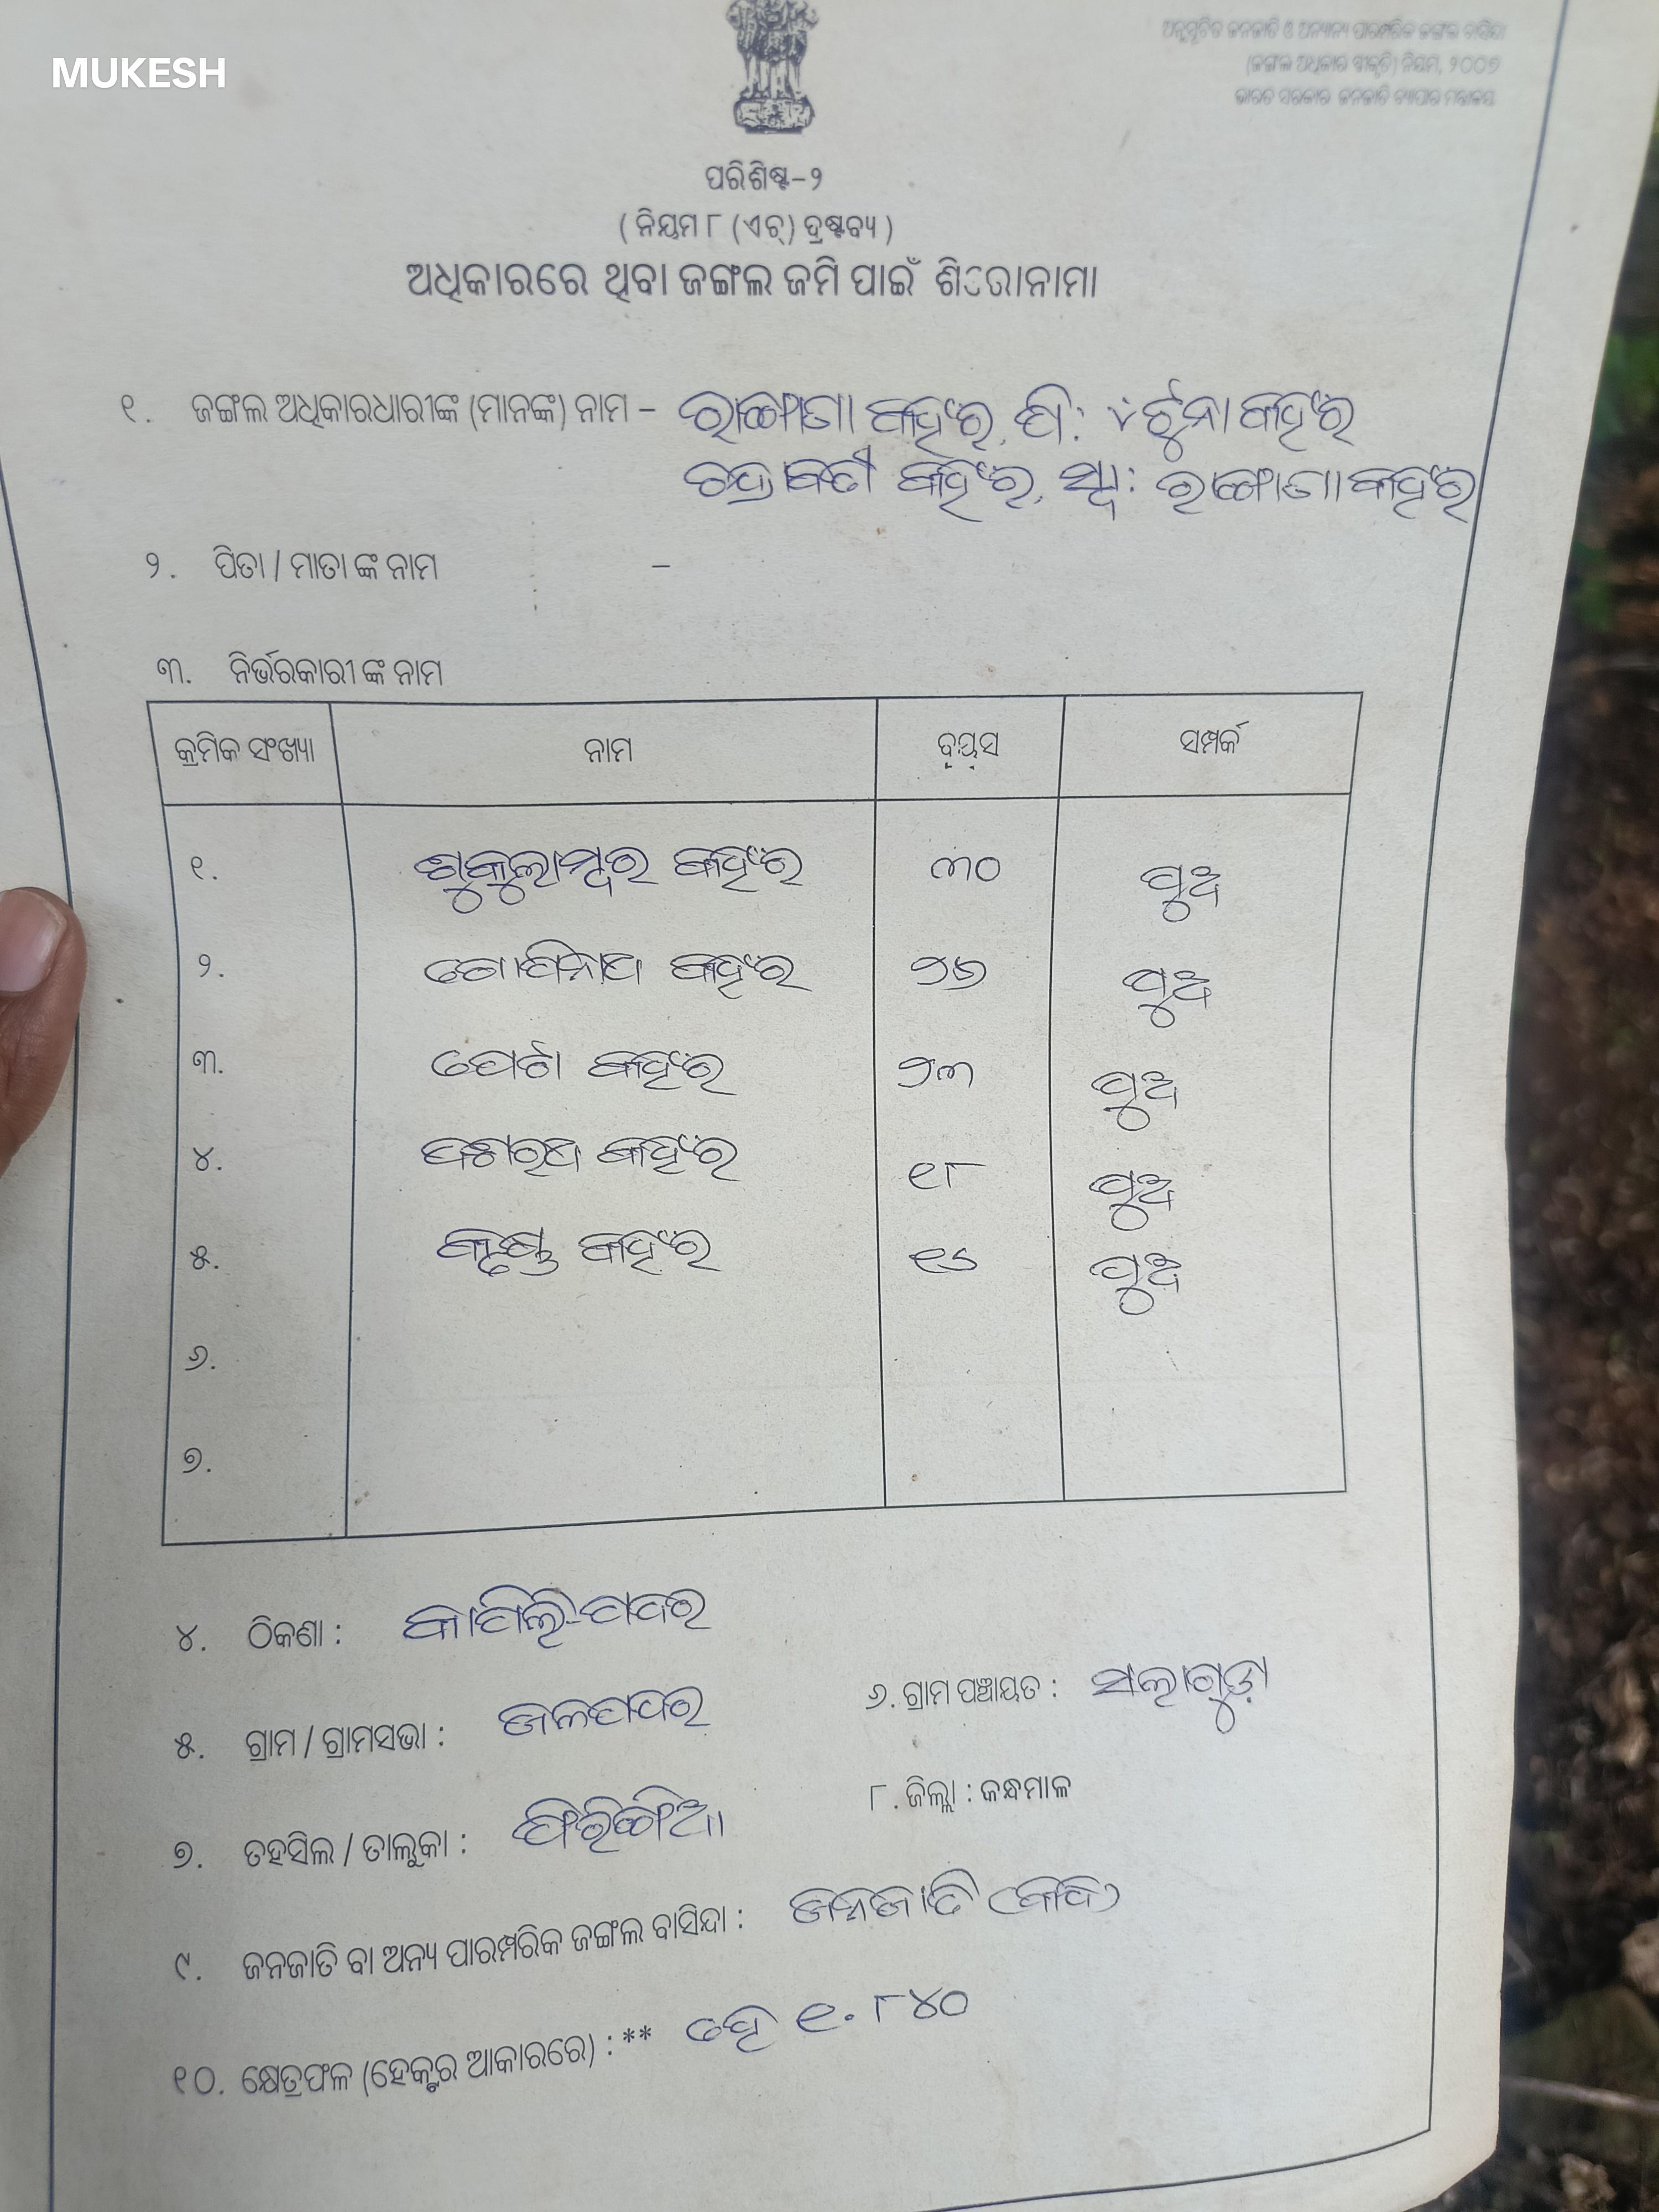 MUKESH
ଅନୁସୂଚିତ ଜନଜାତି ଓ ଅନ୍ୟାନ୍ୟ ପାରମ୍ପରିକ ଜଙ୍ଗଲ ବାସିନ୍ଦା
(ଜଙ୍ଗଲ ଅଧିକାର ସ୍ୱୀକୃତି) ନିୟମ, ୨୦୦୭
ଭାରତ ସରକାର ଜନଜାତି ବ୍ୟାପାର
ପରିଶିଷ୍ଟ–୨
( ନିୟମ ୮ (ଏଚ୍) ଦ୍ରଷ୍ଟବ୍ୟ )
ଅଧିକାରରେ ଥିବା ଜଙ୍ଗଲ ଜମି ପାଇଁ ଶିରୋନାମା
୧. ଜଙ୍ଗଲ ଅଧିକାରଧାରୀଙ୍କ (ମାନଙ୍କ) ନାମ – କହଁର, ପି: ୪ ଟୁନା କହଁର
କହଁର, ସ୍ୱା: କହଁର
୨. ପିତା / ମାତା ଙ୍କ ନାମ –
୩. ନିର୍ଭରକାରୀ ଙ୍କ ନାମ
କ୍ରମିକ ସଂଖ୍ୟା ନାମ ବୟସ ସମ୍ପର୍କ
୧. ଶୁକୁଲାମ୍ବର କହଁର ୩୦ ପୁଅ
୨. ଗୋପିନାଥ କହଁର ୨୬ ପୁଅ
୩. କହଁର ୨୩ ପୁଅ
୪. କହଁର ୧୮ ପୁଅ
୫. କୃଷ୍ଣ କହଁର ପୁଅ
୬.
୭.
୪. ଠିକଣା : କାପିଲି-ପଦର
୫. ଗ୍ରାମ / ଗ୍ରାମସଭା : ଜଳପଦର ୬. ଗ୍ରାମ ପଞ୍ଚାୟତ : ସଲାଗୁଡ଼ା
୭. ତହସିଲ / ତାଲୁକା : ଫିରିଙ୍ଗିଆ ୮. ଜିଲ୍ଲା : କନ୍ଧମାଳ
୯. ଜନଜାତି ବା ଅନ୍ୟ ପାରମ୍ପରିକ ଜଙ୍ଗଲ ବାସିନ୍ଦା : ଜନଜାତି (କନ୍ଧ)
୧୦. କ୍ଷେତ୍ରଫଳ (ହେକ୍ଟର ଆକାରରେ) : ** ହେ ୧.୮୪୦